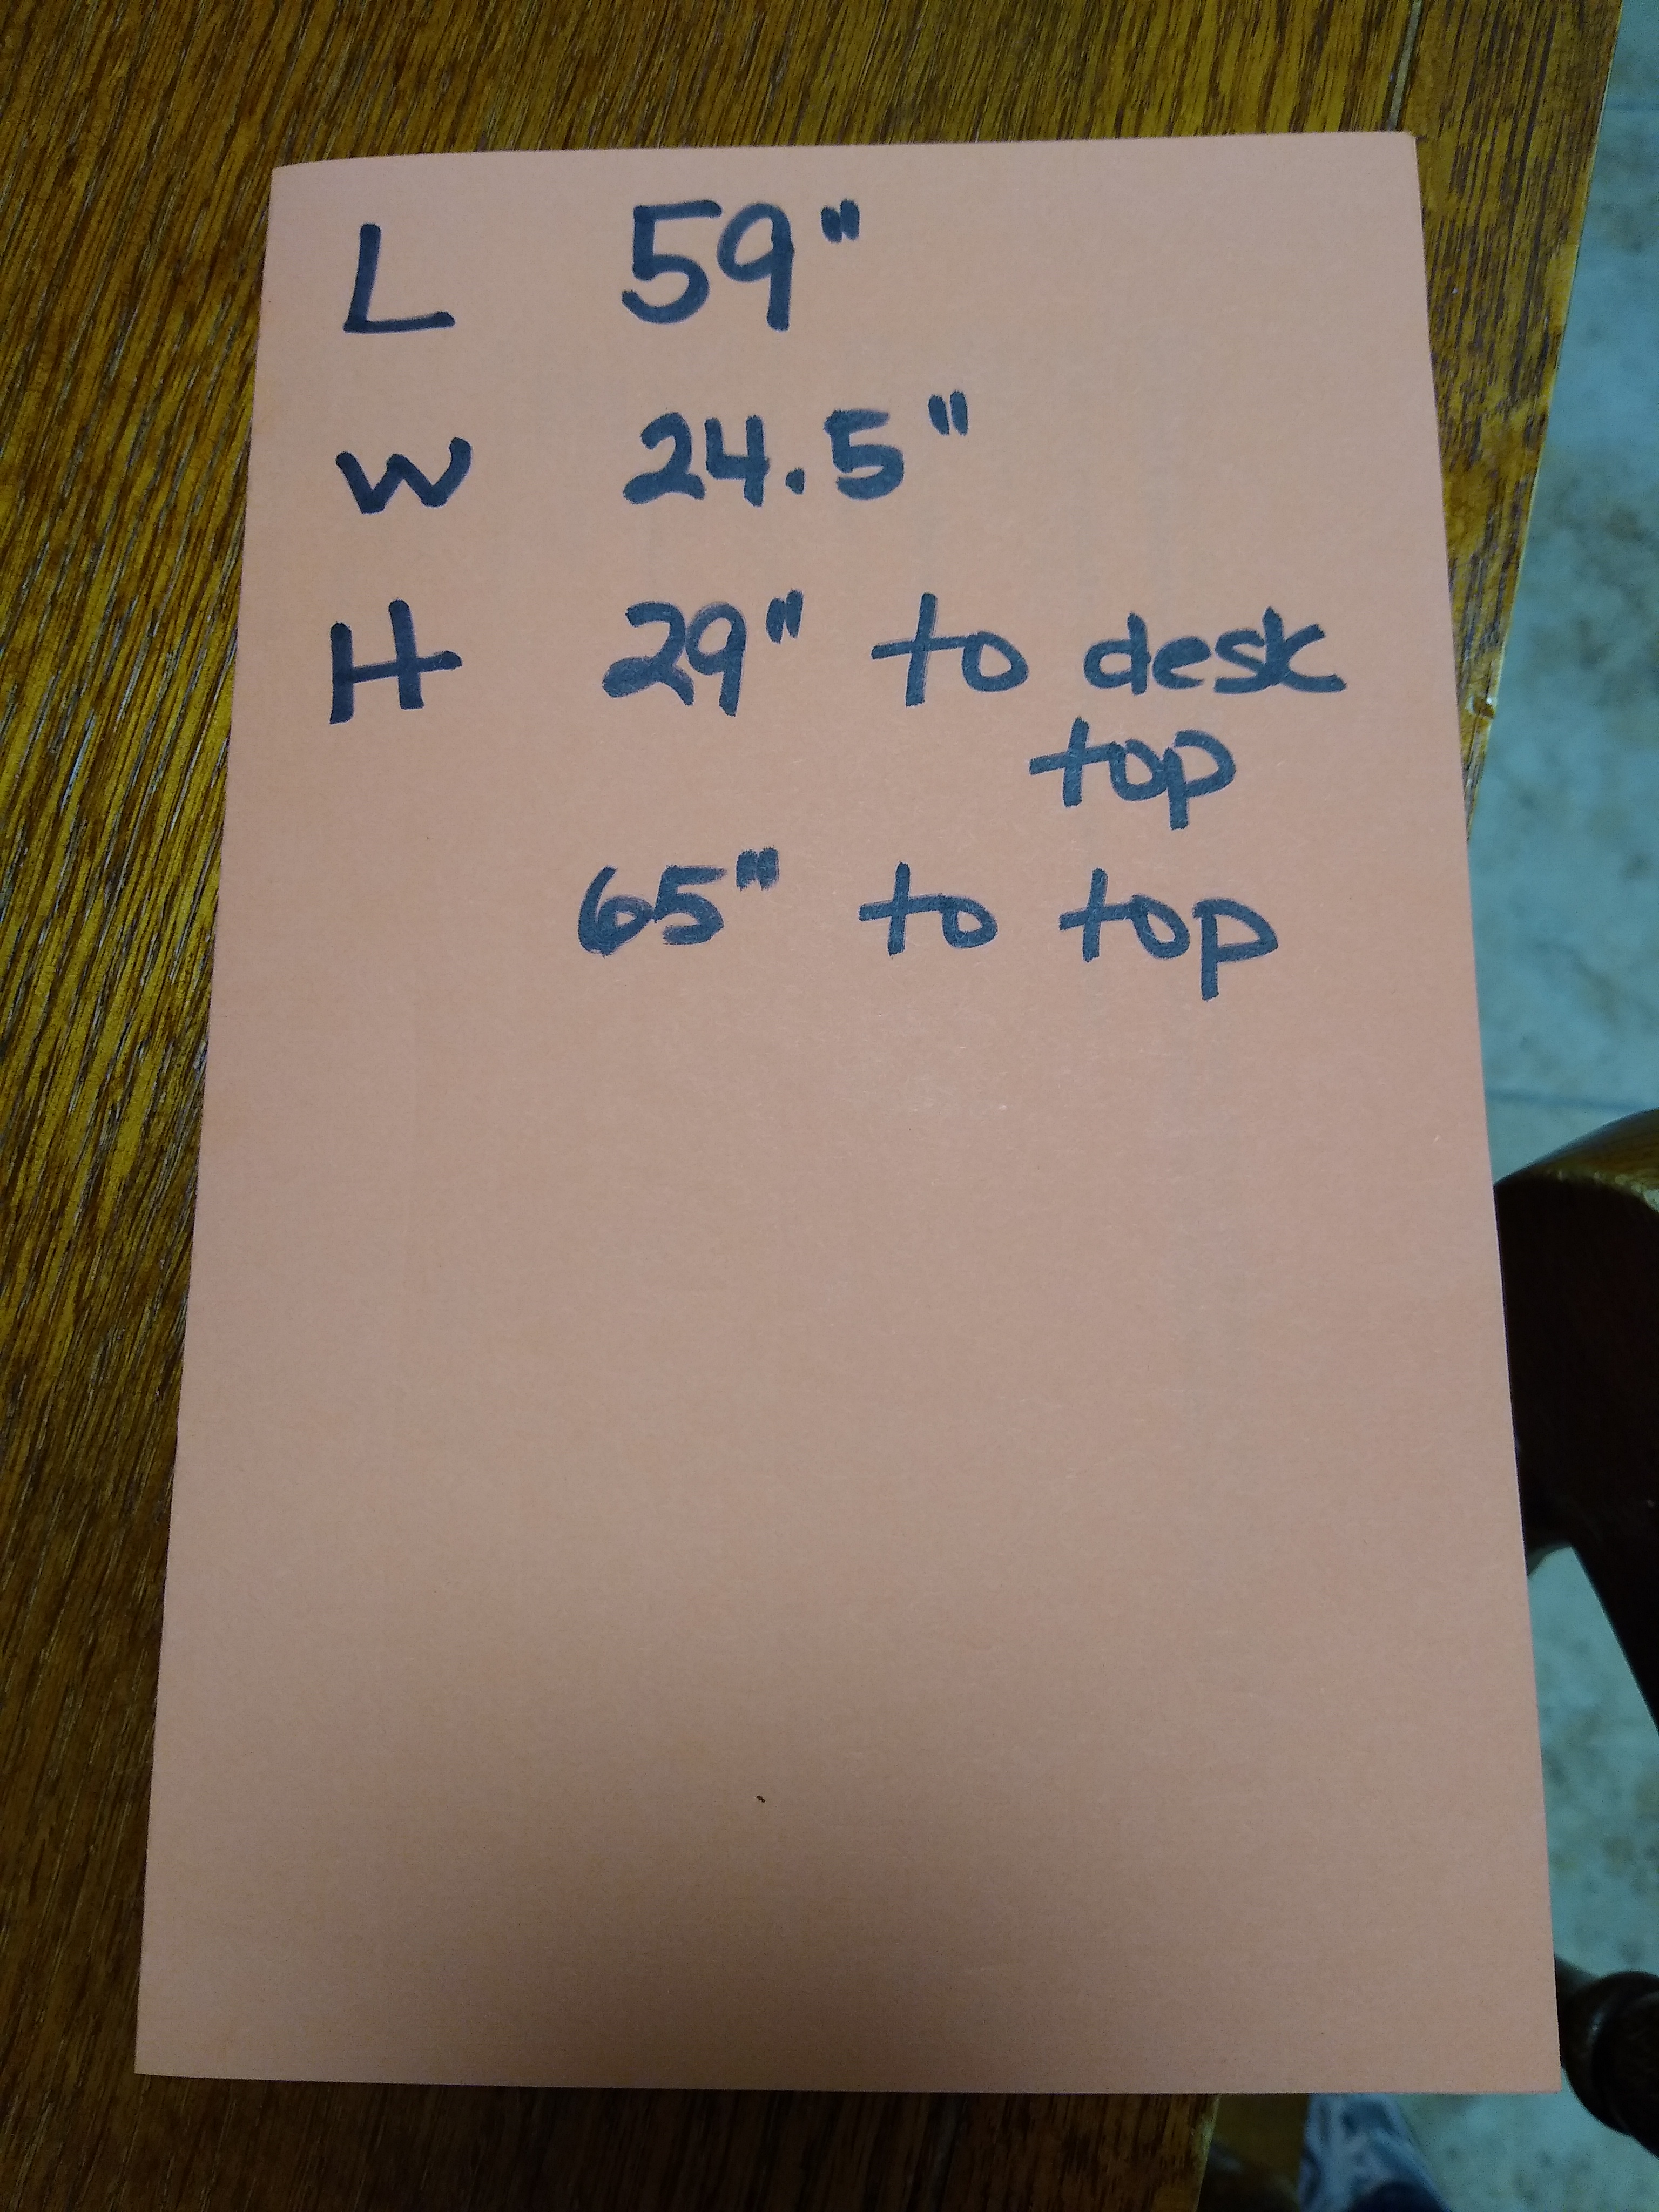 L 59"
W 24.5"
H 29" to desk
top
65" to top